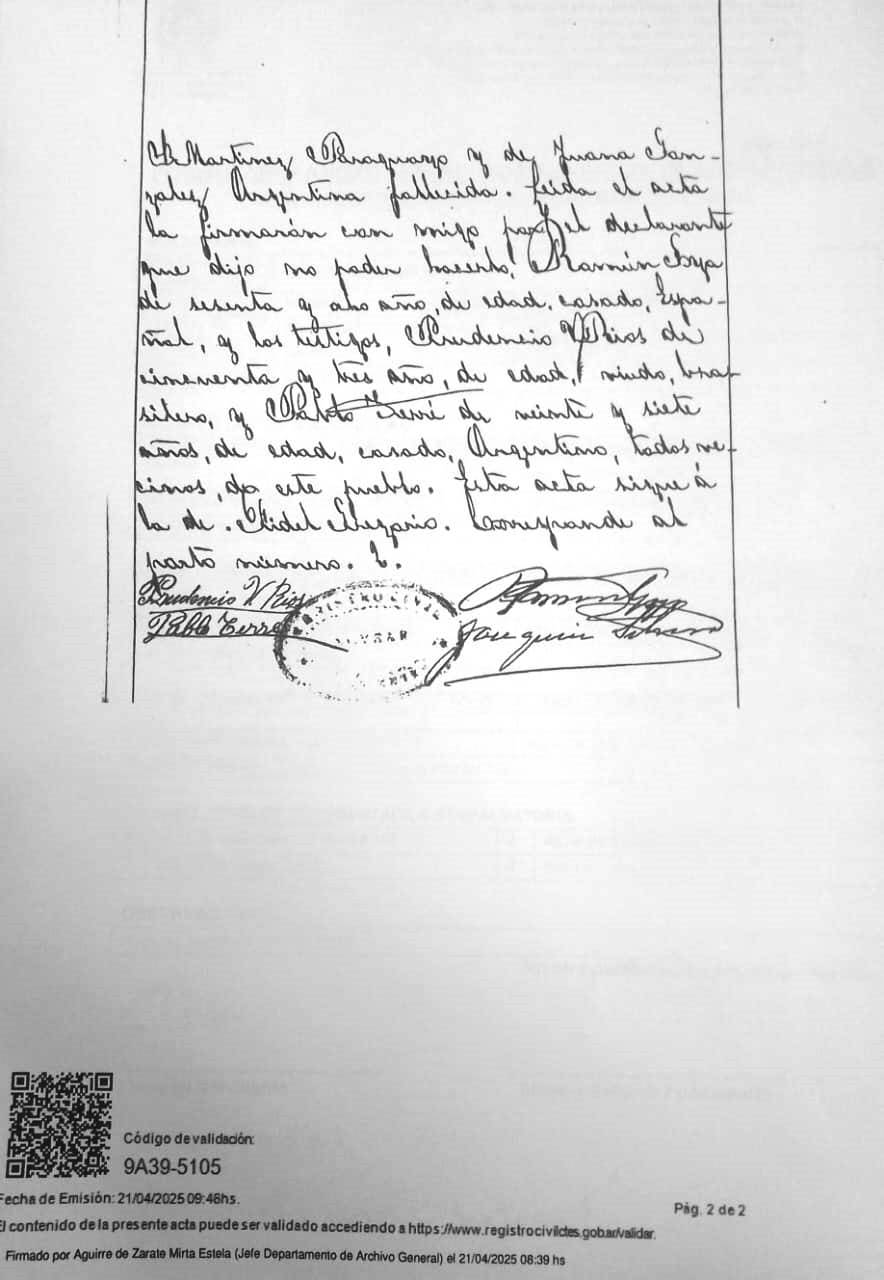 Martinez Paraguayo y de Juana Gon-
zalez Argentina fallecida. Leida el acta
la firmarón con migo por el declarante
que dijo no poder hacerlo, Ramón
de sesenta y año, de edad, casado, Espa-
ñol, y los testigos, Prudencio V Rios de
cincuenta y tres año, de edad, viudo, bra-
silero, y Pablo de veinte y siete
años, de edad, casado, Argentino, todos ve-
cinos, de este pueblo. Esta acta sigue á
la de. Fidel. Corresponde al
parto numero.
Prudencio V Rios
Pablo
REGISTRO CIVIL
Joaquin
Código de validación:
9A39-5105
Fecha de Emisión: 21/04/2025 09:46hs.
Pág. 2 de 2
El contenido de la presente acta puede ser validado accediendo a https://www.registrocivilctes.gob.ar/validar.
Firmado por Aguirre de Zarate Mirta Estela (Jefe Departamento de Archivo General) el 21/04/2025 08:39 hs